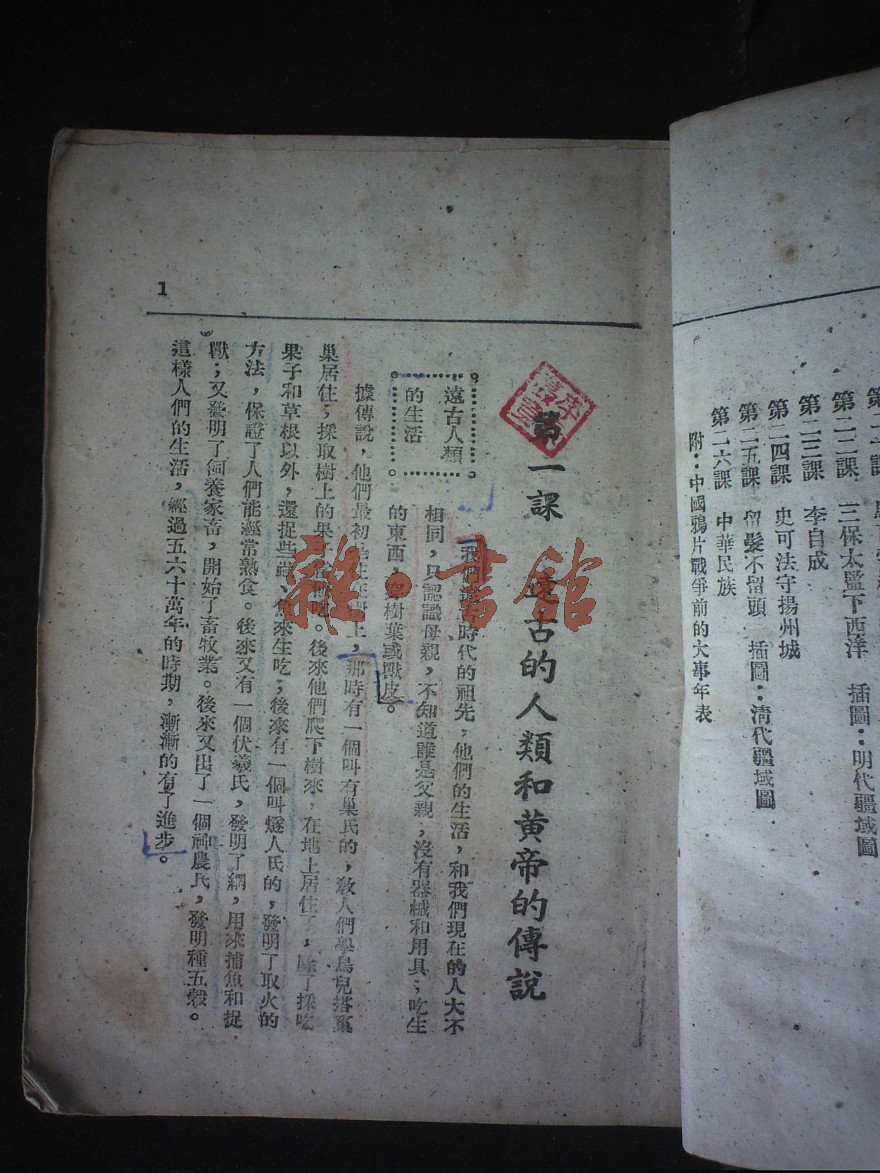 第二二課 三保太監下西洋 插圖：明代疆域圖
第二三課 李自成
第二四課 史可法守揚州城
第二五課 留髮不留頭 插圖：清代疆域圖
第二六課 中華民族
附：中國鴉片戰爭前的大事年表
1
第一課 遠古的人類和黄帝的傳說
遠古人類
的生活
我們遠古時代的祖先，他們的生活，和我們現在的人大不
相同，只認識母親，不知道誰是父親，沒有器械和用具；吃生
的東西，穿樹葉或獸皮。
據傳說，他們最初是住在樹上，那時有一個叫有巢氏的，敎人們學鳥兒搭窠
巢居住；採取樹上的果子。後來他們爬下樹來，在地上居住了，除了採吃
果子和草根以外，還捉些蟲、魚來生吃；後來有一個叫燧人氏的，發明了取火的
方法，保證了人們能經常熟食。後來又有一個伏羲氏，發明了網，用來捕魚和捉
獸；又發明了飼養家畜，開始了畜牧業。後來又出了一個神農氏，發明種五穀。
這樣人們的生活，經過五六十萬年的時期，漸漸的有了進步。
雜·書館